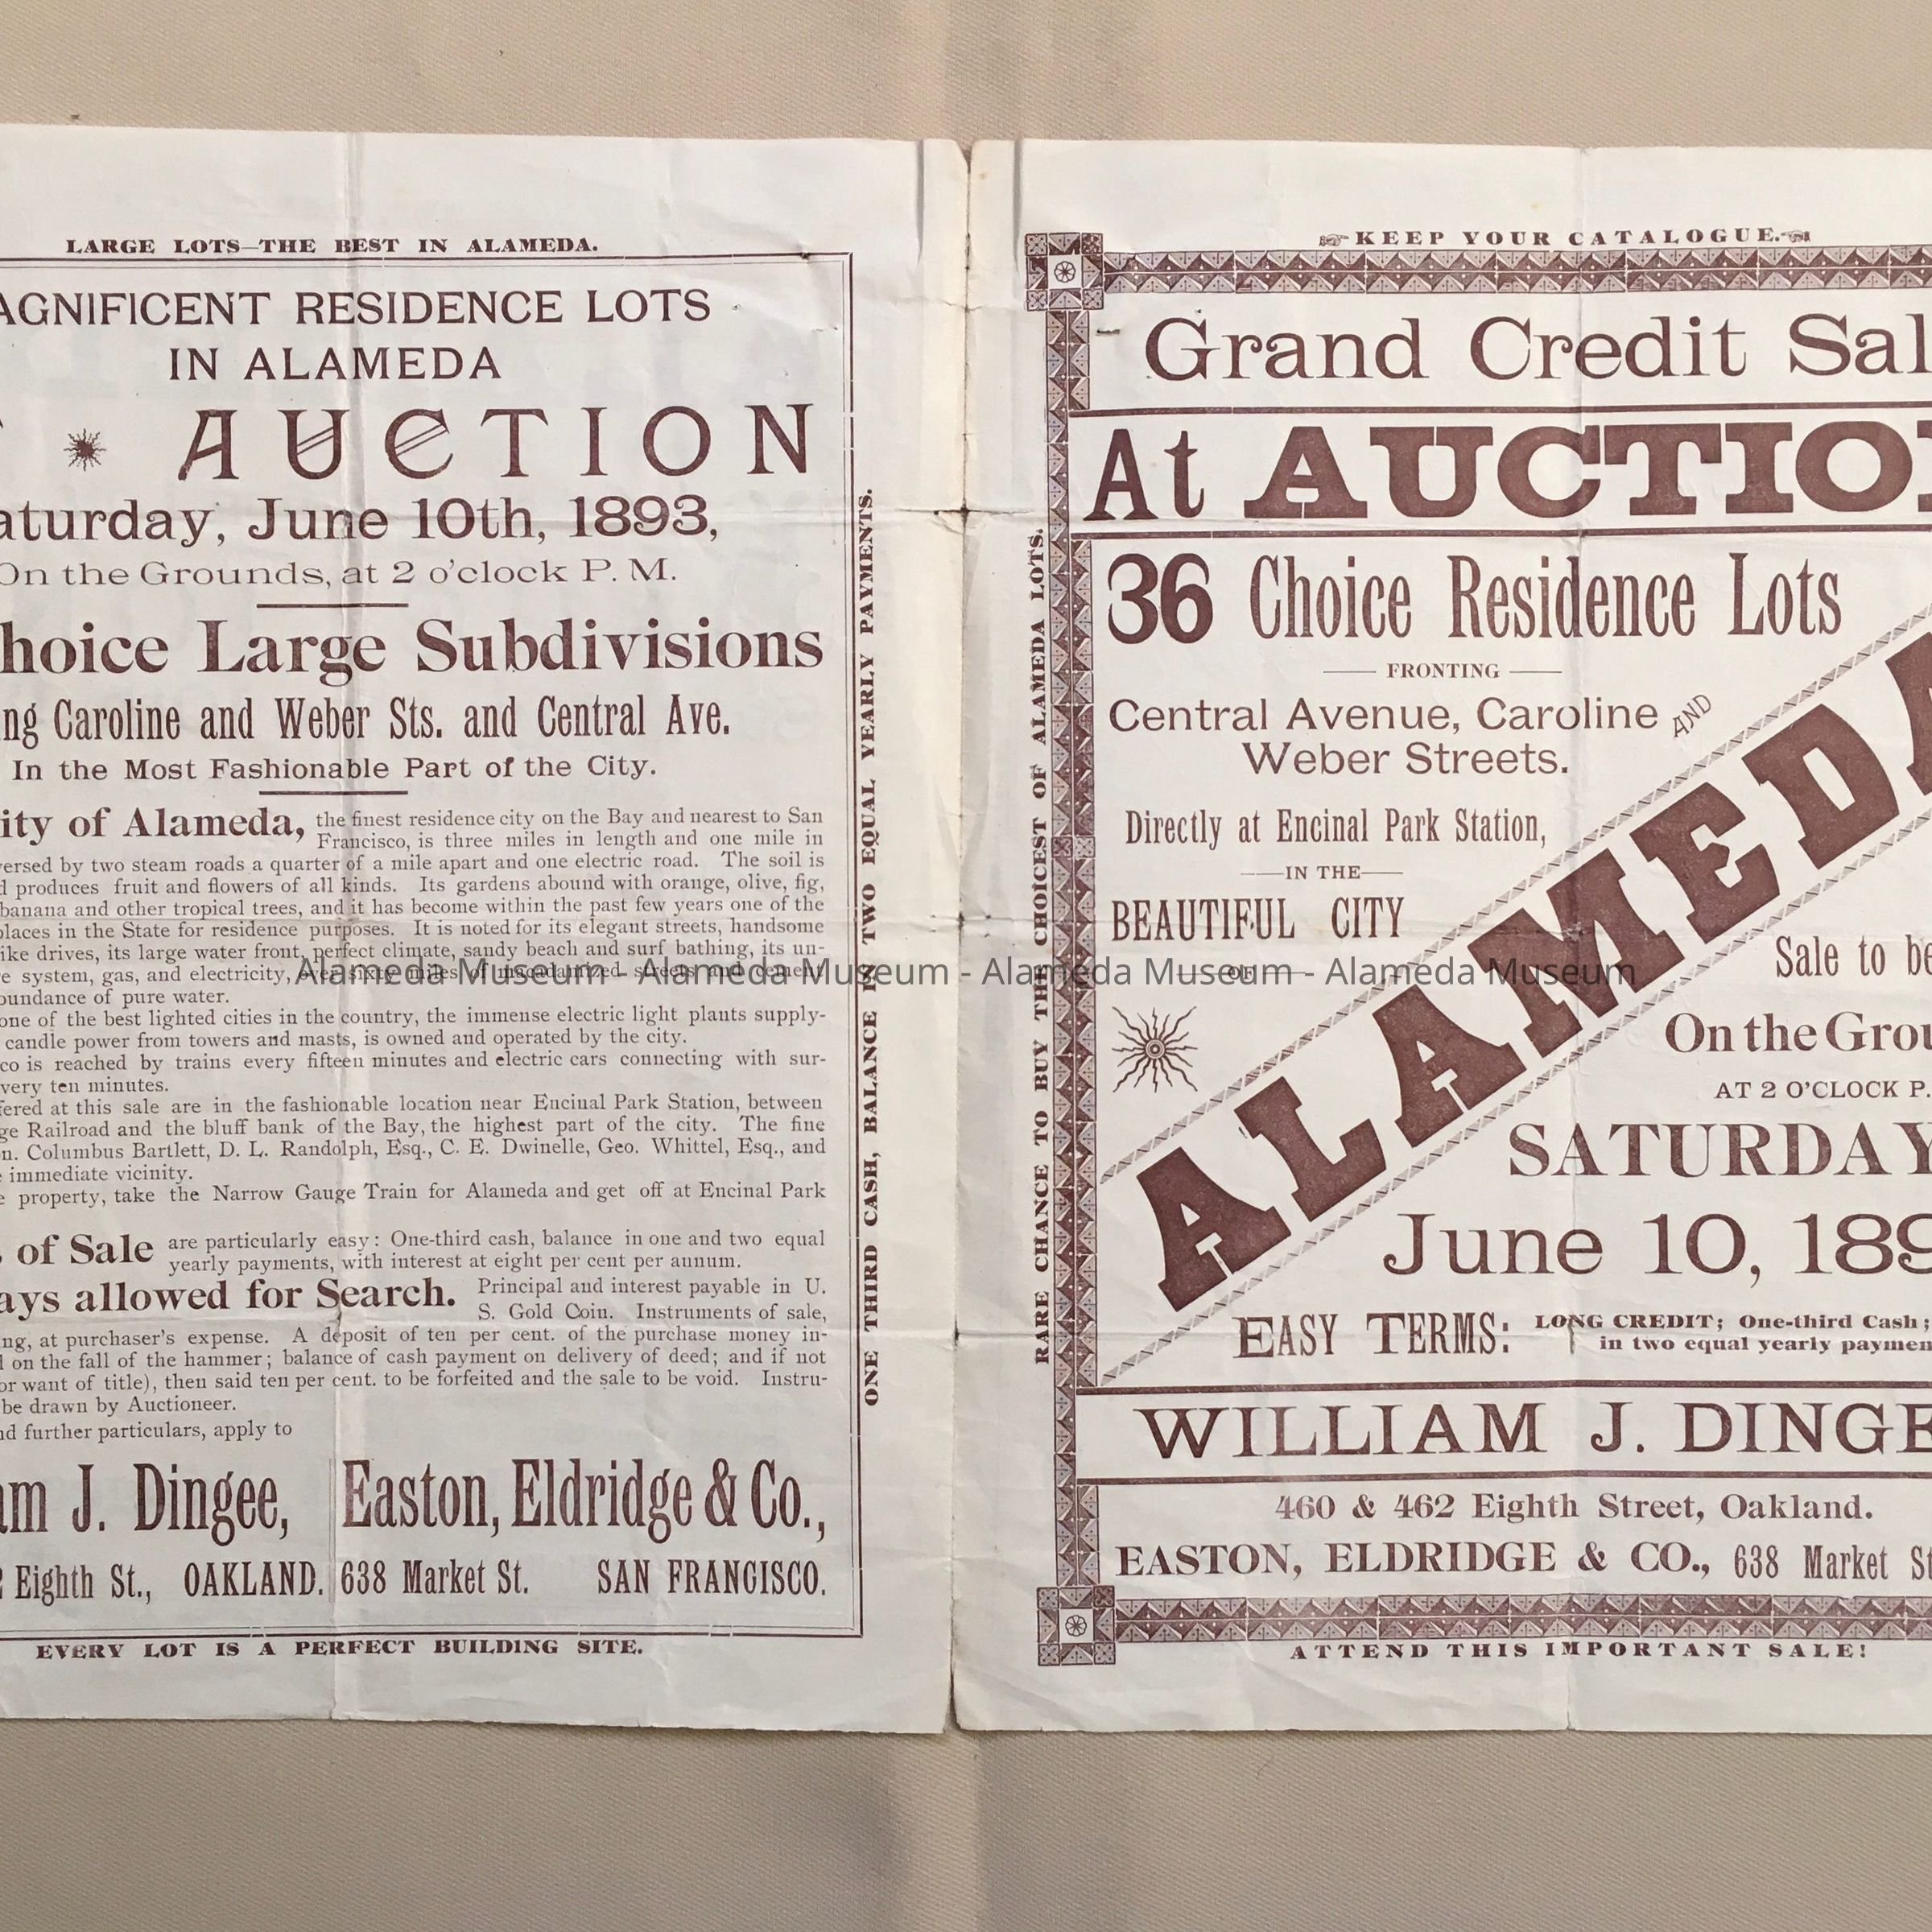 LARGE LOTS—THE BEST IN ALAMEDA.
AGNIFICENT RESIDENCE LOTS
IN ALAMEDA
AUCTION
aturday, June 10th, 1893,
On the Grounds, at 2 o'clock P. M.
hoice Large Subdivisions
ng Caroline and Weber Sts. and Central Ave.
In the Most Fashionable Part of the City.
ity of Alameda, the finest residence city on the Bay and nearest to San
Francisco, is three miles in length and one mile in
versed by two steam roads a quarter of a mile apart and one electric road. The soil is
d produces fruit and flowers of all kinds. Its gardens abound with orange, olive, fig,
banana and other tropical trees, and it has become within the past few years one of the
places in the State for residence purposes. It is noted for its elegant streets, handsome
ike drives, its large water front, perfect climate, sandy beach and surf bathing, its un-
e system, gas, and electricity, over sixty miles of macadamized streets and cement
bundance of pure water.
one of the best lighted cities in the country, the immense electric light plants supply-
candle power from towers and masts, is owned and operated by the city.
co is reached by trains every fifteen minutes and electric cars connecting with sur-
very ten minutes.
fered at this sale are in the fashionable location near Encinal Park Station, between
ge Railroad and the bluff bank of the Bay, the highest part of the city. The fine
n. Columbus Bartlett, D. L. Randolph, Esq., C. E. Dwinelle, Geo. Whittel, Esq., and
e immediate vicinity.
e property, take the Narrow Gauge Train for Alameda and get off at Encinal Park
s of Sale are particularly easy: One-third cash, balance in one and two equal
yearly payments, with interest at eight per cent per annum.
ays allowed for Search. Principal and interest payable in U.
S. Gold Coin. Instruments of sale,
ng, at purchaser's expense. A deposit of ten per cent. of the purchase money in-
l on the fall of the hammer; balance of cash payment on delivery of deed; and if not
or want of title), then said ten per cent. to be forfeited and the sale to be void. Instru-
be drawn by Auctioneer.
nd further particulars, apply to
am J. Dingee,
2 Eighth St., OAKLAND.
Easton, Eldridge & Co.,
638 Market St. SAN FRANCISCO.
EVERY LOT IS A PERFECT BUILDING SITE.
ONE THIRD CASH, BALANCE IN TWO EQUAL YEARLY PAYMENTS.
RARE CHANCE TO BUY THE CHOICEST OF ALAMEDA LOTS.
KEEP YOUR CATALOGUE.
Grand Credit Sal
At AUCTION
36 Choice Residence Lots
FRONTING
Central Avenue, Caroline AND
Weber Streets.
Directly at Encinal Park Station,
IN THE
BEAUTIFUL CITY
OF
ALAMEDA
Sale to be
On the Grou
AT 2 O'CLOCK P.
SATURDAY
June 10, 189
EASY TERMS: LONG CREDIT; One-third Cash;
in two equal yearly paymen
WILLIAM J. DINGE
460 & 462 Eighth Street, Oakland.
EASTON, ELDRIDGE & CO., 638 Market St
ATTEND THIS IMPORTANT SALE!
Alameda Museum - Alameda Museum - Alameda Museum - Alameda Museum